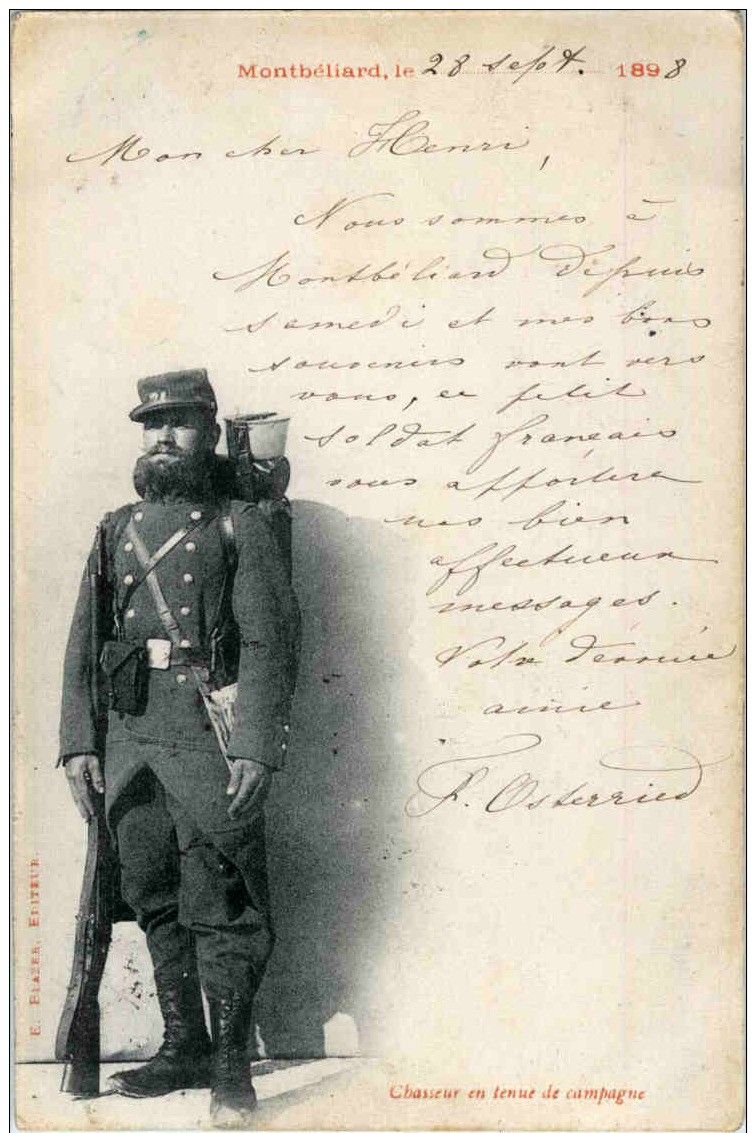 Montbéliard, le 28 sept. 1898
Mon cher Henri,
Nous sommes à
Montbéliard depuis
samedi et mes bons
souvenirs vont vers
vous, ce petit
soldat français
vous apportera
mes bien
affectueux
messages.
Votre dévouée
amie
F. Osterried
E. Blazer, Editeur.
Chasseur en tenue de campagne